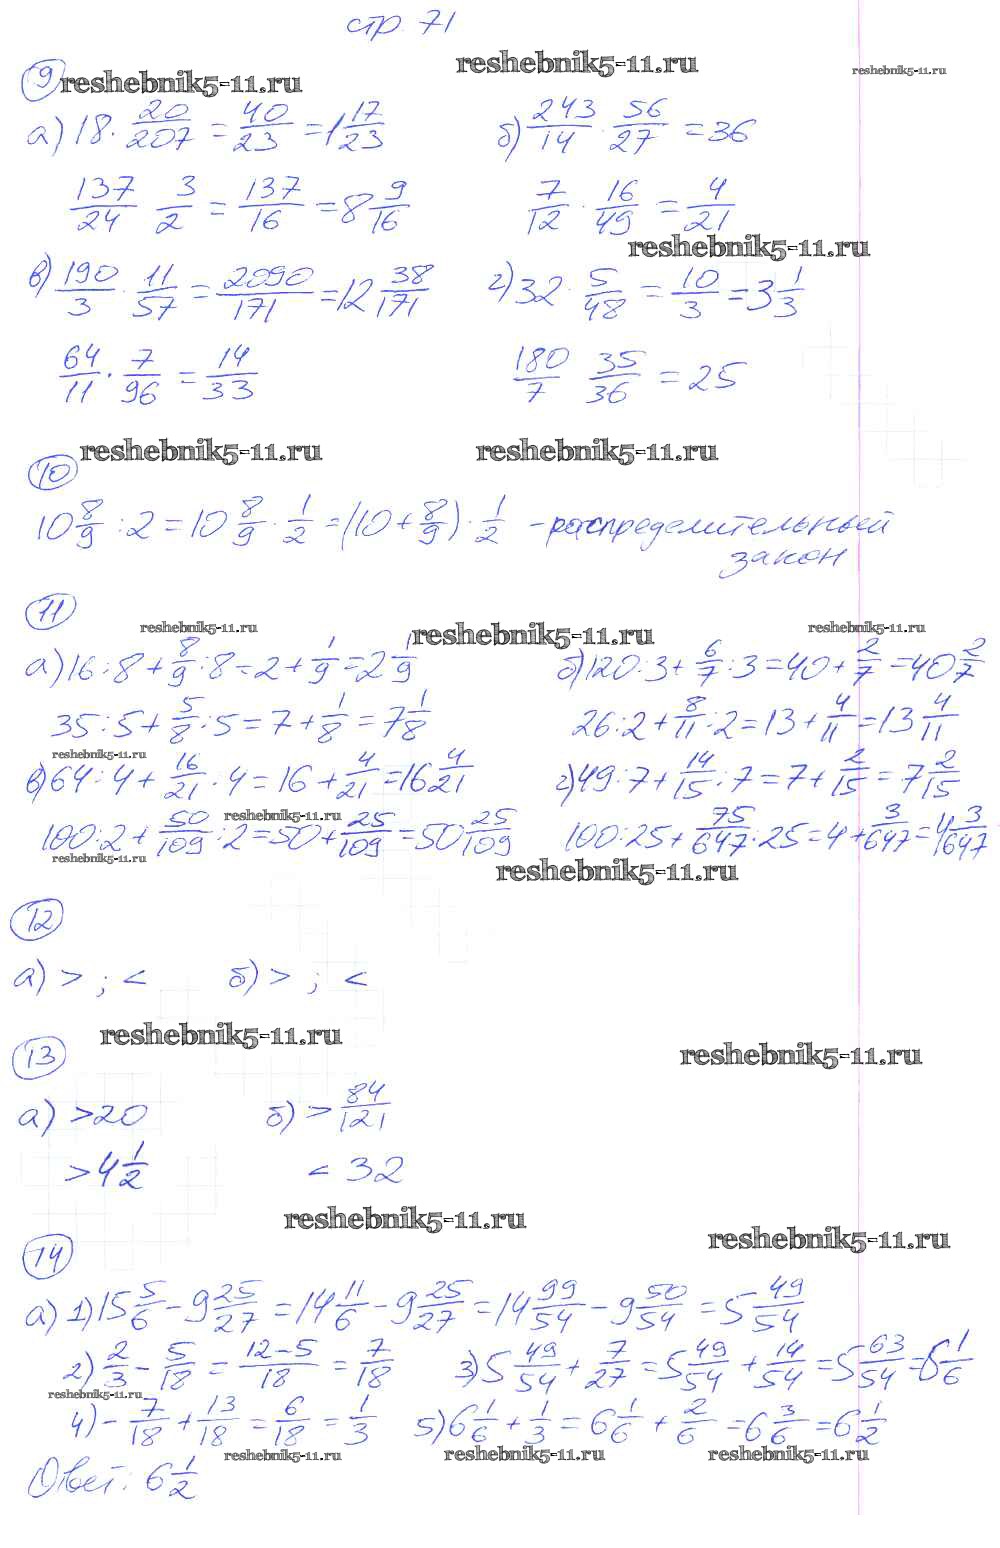 стр. 71
9 reshebnik5-11.ru reshebnik5-11.ru reshebnik5-11.ru
а) 18 · 20/207 = 40/23 = 1 17/23 б) 243/14 · 56/27 = 36
137/24 3/2 = 137/16 = 8 9/16 7/12 · 16/49 = 4/21
reshebnik5-11.ru
в) 190/3 · 11/57 = 2090/171 = 12 38/171 г) 32 · 5/48 = 10/3 = 3 1/3
64/11 · 7/96 = 14/33 180/7 35/36 = 25
10 reshebnik5-11.ru reshebnik5-11.ru
10 8/9 : 2 = 10 8/9 · 1/2 = (10 + 8/9) · 1/2 - распределительный
закон
11
reshebnik5-11.ru reshebnik5-11.ru reshebnik5-11.ru
а) 16 : 8 + 8/9 : 8 = 2 + 1/9 = 2 1/9 б) 120 : 3 + 6/7 : 3 = 40 + 2/7 = 40 2/7
35 : 5 + 5/8 : 5 = 7 + 1/8 = 7 1/8 26 : 2 + 8/11 : 2 = 13 + 4/11 = 13 4/11
reshebnik5-11.ru
в) 64 : 4 + 16/21 · 4 = 16 + 4/21 = 16 4/21 г) 49 : 7 + 14/15 : 7 = 7 + 2/15 = 7 2/15
reshebnik5-11.ru
100 : 2 + 50/109 : 2 = 50 + 25/109 = 50 25/109 100 : 25 + 75/647 : 25 = 4 + 3/647 = 4 3/647
reshebnik5-11.ru reshebnik5-11.ru
12
а) > ; < б) > ; <
reshebnik5-11.ru
13 reshebnik5-11.ru
а) > 20 б) > 84/121
> 4 1/2 < 32
reshebnik5-11.ru reshebnik5-11.ru
14
а) 1) 15 5/6 - 9 25/27 = 14 11/6 - 9 25/27 = 14 99/54 - 9 50/54 = 5 49/54
2) 2/3 - 5/18 = 12-5/18 = 7/18 3) 5 49/54 + 7/27 = 5 49/54 + 14/54 = 5 63/54 = 6 1/6
reshebnik5-11.ru
4) - 7/18 + 13/18 = 6/18 = 1/3 5) 6 1/6 + 1/3 = 6 1/6 + 2/6 = 6 3/6 = 6 1/2
reshebnik5-11.ru reshebnik5-11.ru reshebnik5-11.ru
Ответ: 6 1/2